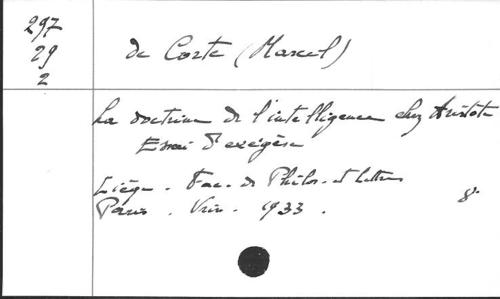 297
29
2
de Corte (Marcel)
La doctrine de l'intelligence chez Aristote
Essai d'exégèse
Liège. Fac. de Philos. et Lettres
Paris. Vrin. 1933. 8°